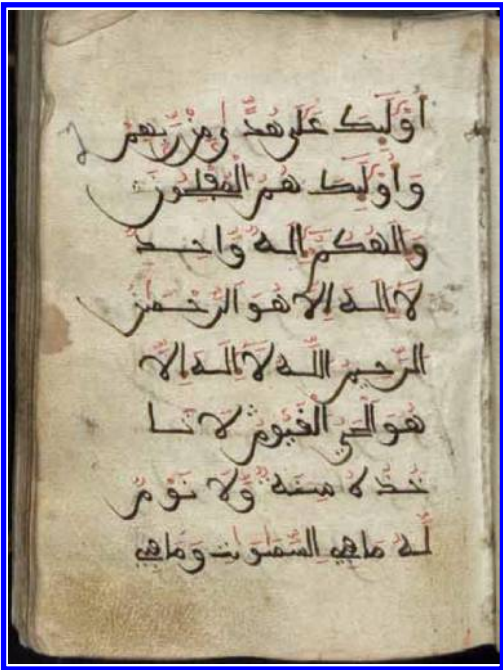 أُوْلَٰٓئِكَ عَلَىٰ هُدًى مِّن رَّبِّهِمْ
وَأُوْلَٰٓئِكَ هُمُ الْمُفْلِحُونَ
وَإِلَٰهُكُمْ إِلَٰهٌ وَٰحِدٌ
لَّا إِلَٰهَ إِلَّا هُوَ الرَّحْمَٰنُ
الرَّحِيمُ اللَّهُ لَا إِلَٰهَ إِلَّا
هُوَ الْحَيُّ الْقَيُّومُ لَا تَا
خُذُهُ سِنَةٌ وَلَا نَوْمٌ
لَّهُ مَا فِي السَّمَٰوَٰتِ وَمَا فِي